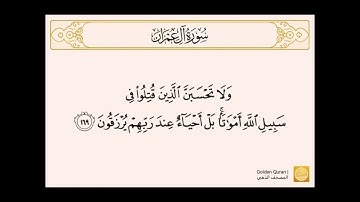 سُورَةُ آلِ عِمْرَانَ
وَلَا تَحْسَبَنَّ الَّذِينَ قُتِلُوا۟ فِى
سَبِيلِ ٱللَّهِ أَمْوَٰتًۢا ۚ بَلْ أَحْيَآءٌ عِندَ رَبِّهِمْ يُرْزَقُونَ ١٦٩
Golden Quran |
المصحف الذهبي